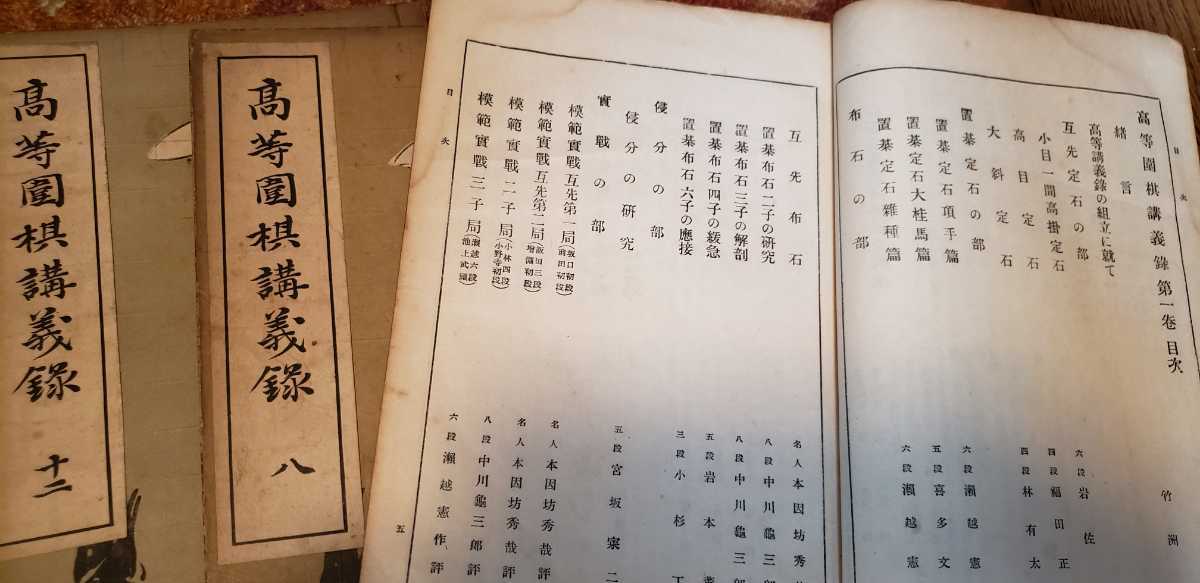 目次
高等圍棋講義錄 第一卷 目次
緒言
高等講義錄の組立に就て 竹洲
互先定石の部
小目一間高掛定石 六段 岩佐
高目定石 四段 福田正
大斜定石 四段 林有太
置棊定石の部
置棊定石項手篇 六段 瀨越憲
置棊定石大桂馬篇 五段 喜多文
置棊定石雜種篇 六段 瀨越憲
布石の部
互先布石 名人 本因坊秀
置棊布石二子の研究 八段 中川龜三
置棊布石三子の解剖 八段 中川龜三
置棊布石四子の緩急 五段 岩本
置棊布石六子の應接 三段 小杉
侵分の部
侵分の研究 五段 宮坂寀二
實戰の部
模範實戰互先第一局(坂口初段 前田初段) 名人 本因坊秀哉評
模範實戰互先第二局(飯田三段 增淵初段) 名人 本因坊秀哉評
模範實戰二子局(小林四段 小野寺初段) 八段 中川龜三郎評
模範實戰三子局(瀨越六段 池上武) 六段 瀨越憲作評
目次
五
高等圍棋講義錄 八
高等圍棋講義錄 十二